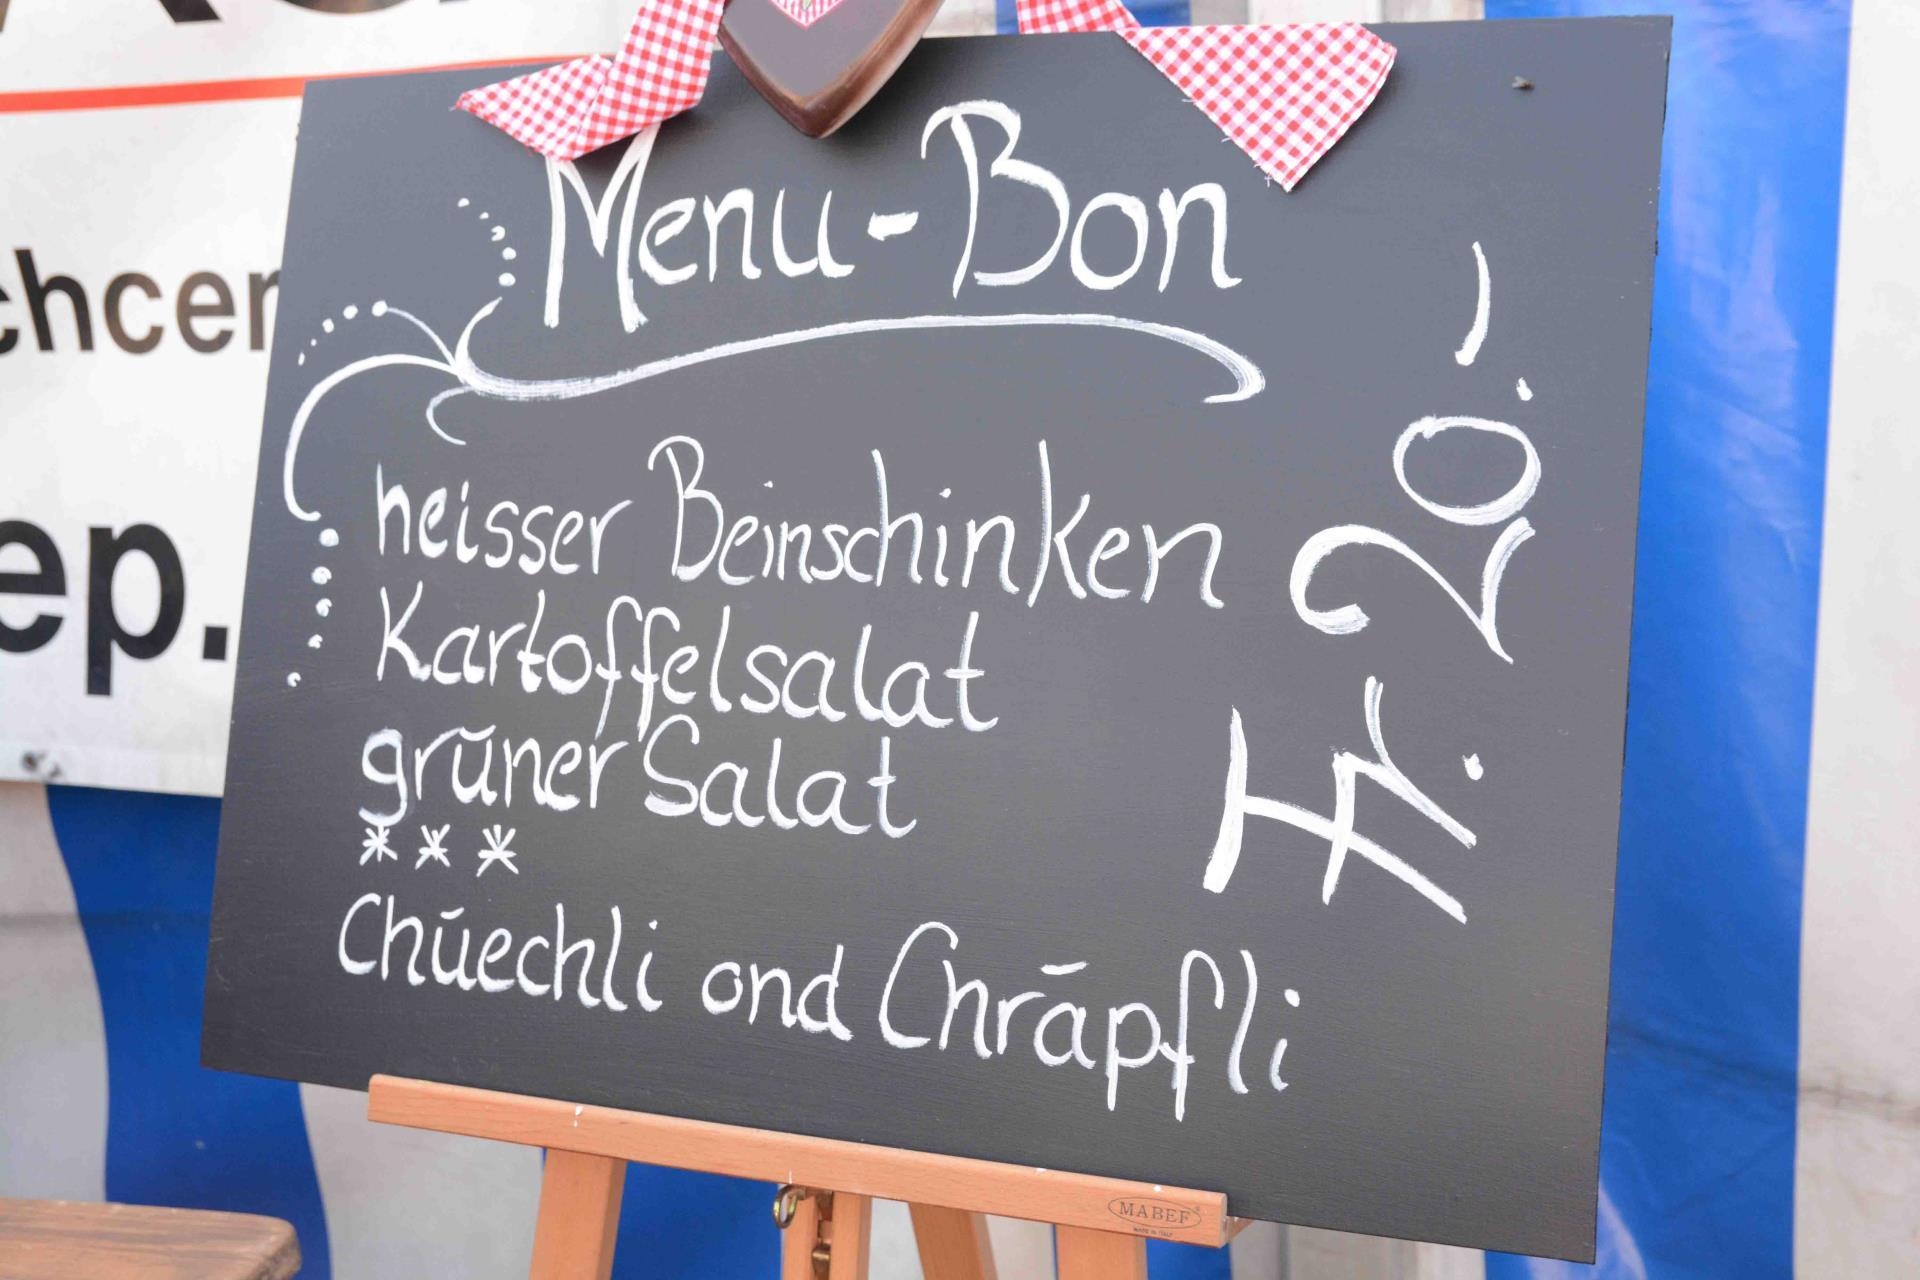 Menu-Bon
heisser Beinschinken
Kartoffelsalat
grüner Salat
***
Chüechli ond Chräpfli
Fr. 20.-
chcer
ep.
MABEF
MADE IN ITALY